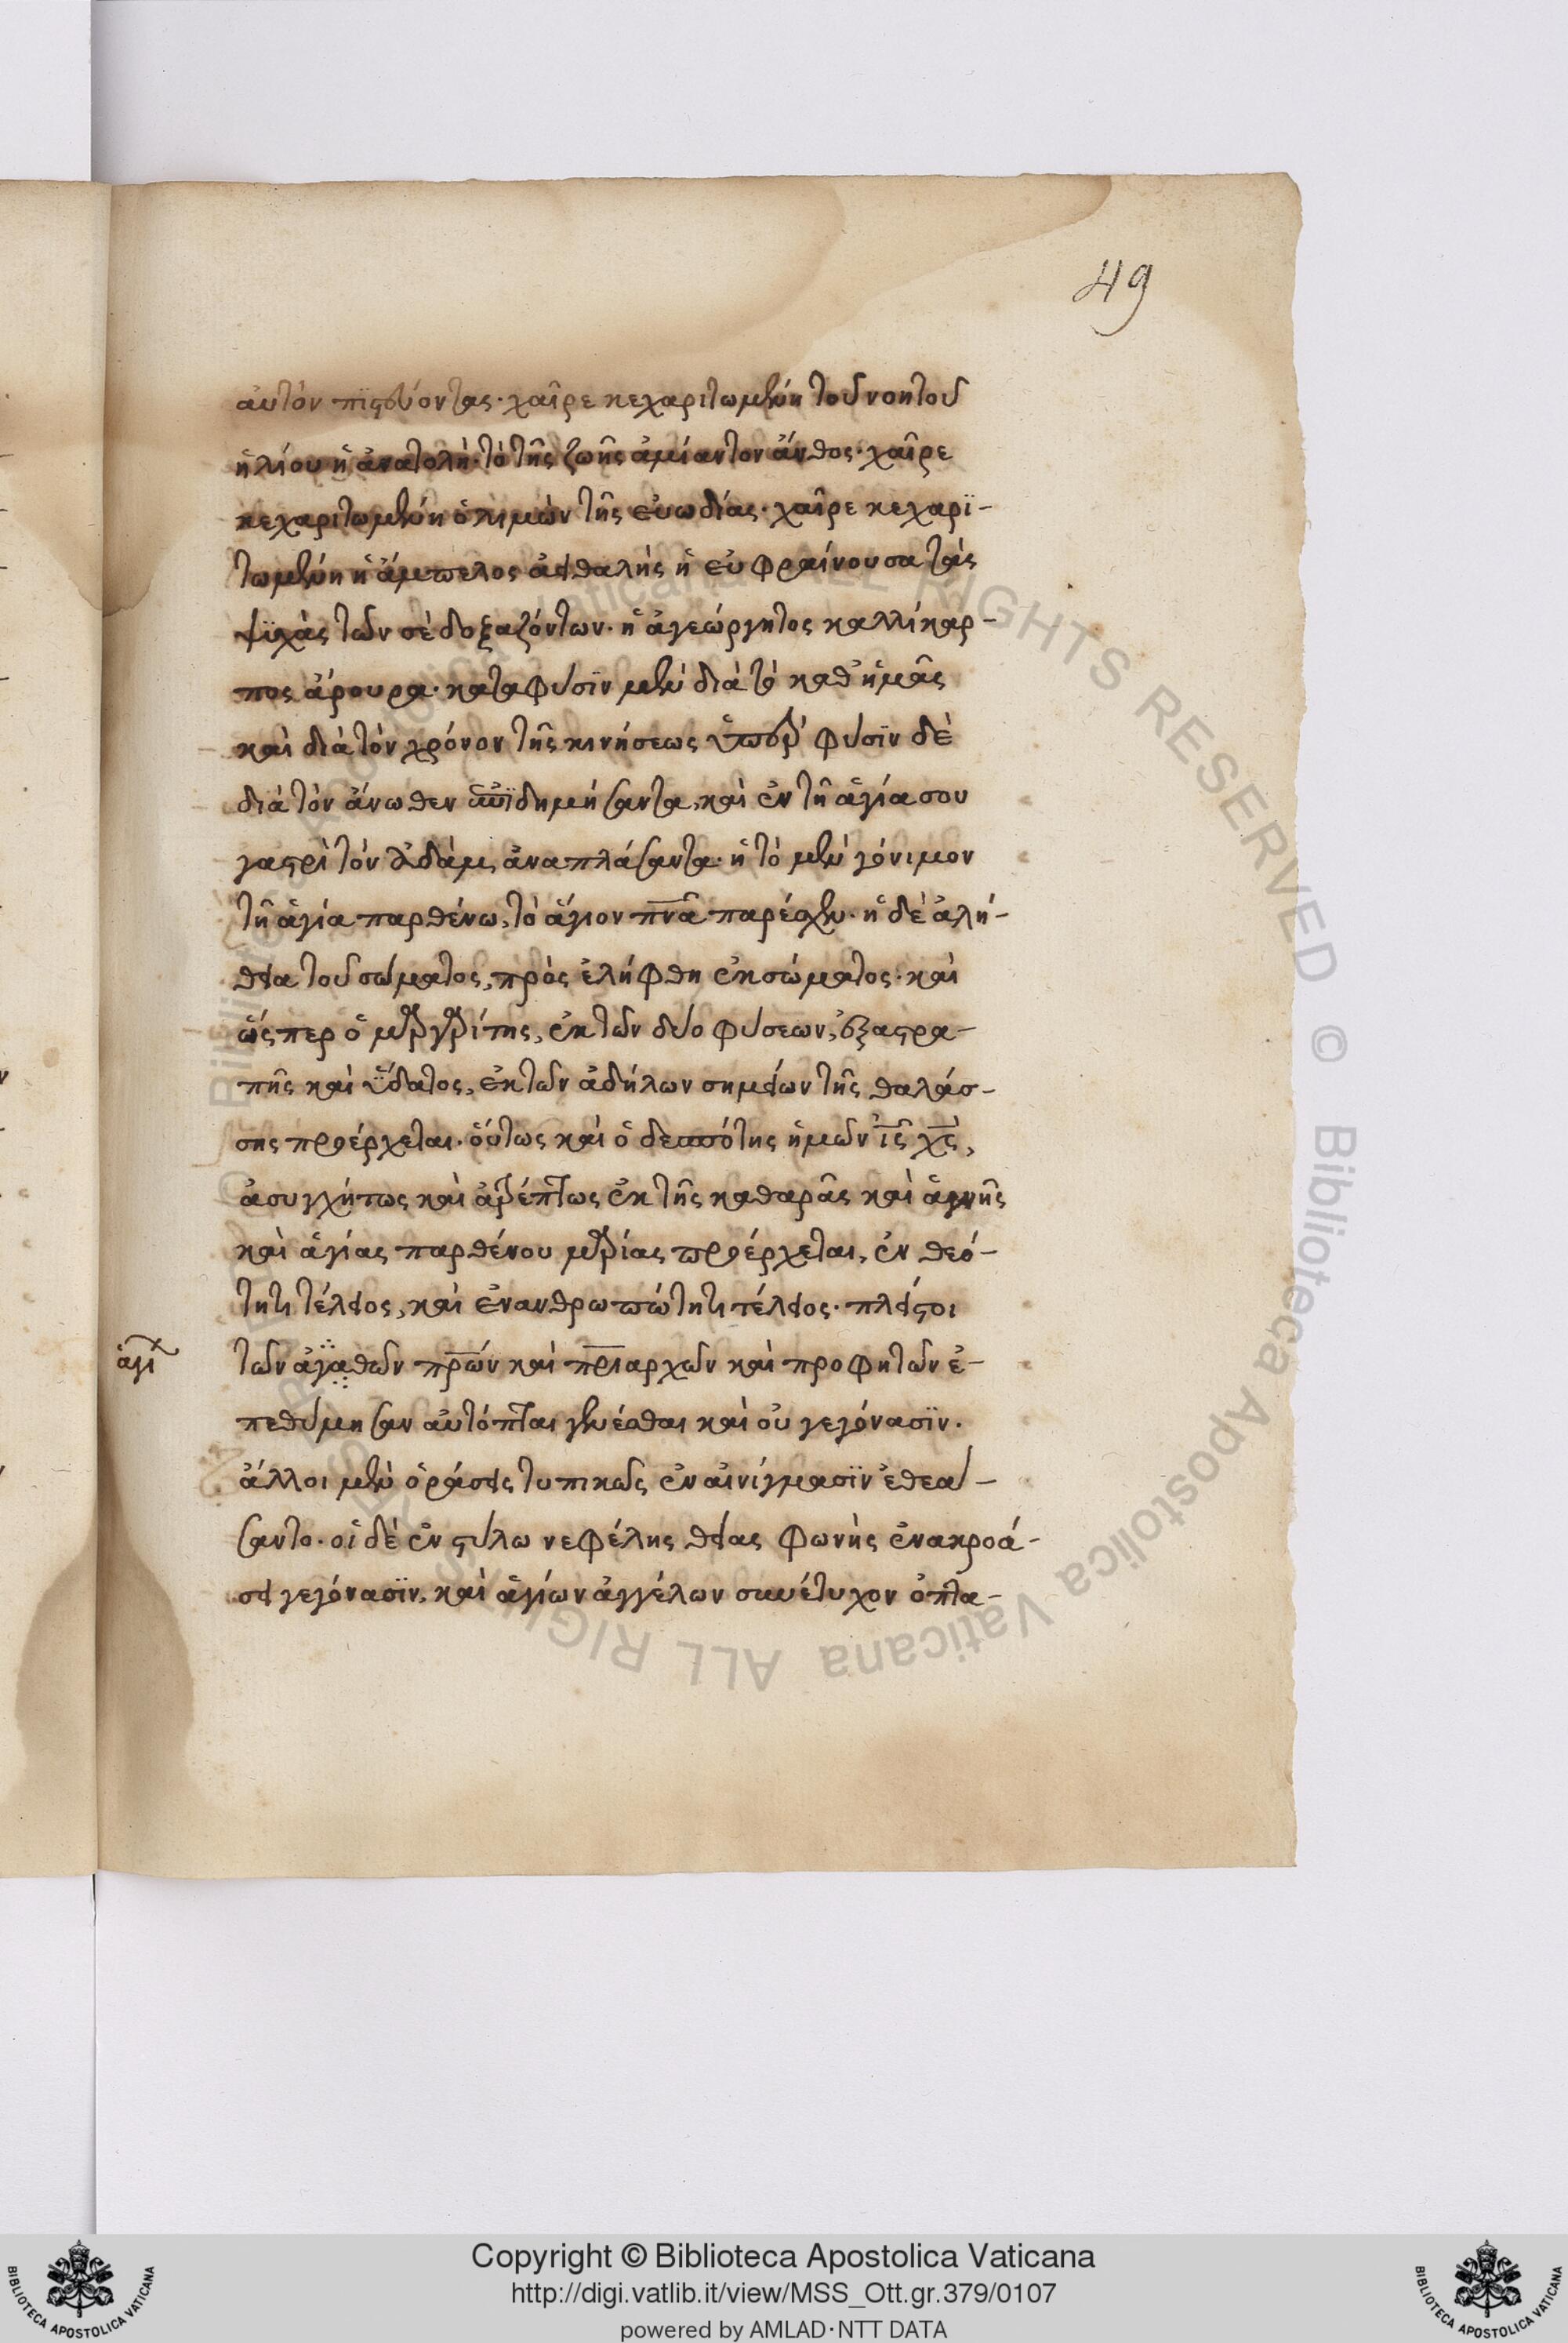 49
αὐτὸν πϊστεύοντας· χαῖρε κεχαριτωμένη τοῦ νοητοῦ
ἡλίου ἡ ἀνατολὴ· τὸ τῆς ζωῆς ἀμίαντον ἄνθος· χαῖρε
κεχαριτωμένη ὁ λιμὼν τῆς εὐωδίας· χαῖρε κεχαρϊ-
τωμένη ἡ ἄμπελος ἀειθαλὴς ἡ εὐφραίνουσα τὰς
ψϋχὰς τῶν σὲ δοξαζόντων· ἡ ἀγεώργητος καλλίκαρ-
πος ἄρουρα· κατα φύσϊν μὲν διὰ τὸ καθ' ἡμᾶς
καὶ διὰ τὸν χρόνον τῆς κινήσεως ὑπὲρ φύσϊν δὲ
διὰ τὸν ἄνωθεν ἐπϊδημήσαντα, καὶ ἐν τῆ ἁγία σου
γαστρὶ τὸν ἀδὰμ, ἀναπλάσαντα· ἢ τὸ μὲν γόνιμον
τῆ ἁγία παρθένω, τὸ ἅγιον πνᾶ παρέσχεν· ἡ δὲ ἀλή-
θεια τοῦ σώματος, πρὸς ἐλήφθη ἐκ σώματος· καὶ
ὥσπερ ὁ μαργαρίτης, ἐκ τῶν δύο φύσεων, ἐξ ἀστρα-
πῆς καὶ ὕδατος, ἐκ τῶν ἀδήλων σημείων τῆς θαλάσ-
σης προέρχεται· οὕτως καὶ ὁ δεσπότης ἡμῶν ἰς χς,
ἀσυγχήτως καὶ ἀτρέπτως ἐκ τῆς καθαρᾶς καὶ ἁγνῆς
καὶ ἁγίας παρθένου μαρίας προέρχεται, ἐν θεό-
τητι τέλειος, καὶ ἐν ἀνθρωπώτητι τέλειος· πλεῖστοι
ἁγί
τῶν ἀγαθῶν πρων καὶ πριαρχῶν καὶ προφητῶν ἐ-
πεθύμησαν αὐτόπται γενέσθαι καὶ οὐ γεγόνασϊν.
ἄλλοι μὲν ὁράσεις τυπικῶς ἐν αἰνίγμασϊν ἐθεα-
σαντο· οἱ δὲ ἐν στύλω νεφέλης θείας φωνὴς ἐν ἀκροά-
σει γεγόνασϊν, καὶ ἁγίων ἀγγέλων συνέτυχον ὀπτα-
© Biblioteca Apostolica Vaticana ALL RIGHTS RESERVED © Biblioteca Apostolica Vaticana ALL RIGHTS RESERVED
BIBLIOTECA APOSTOLICA VATICANA
Copyright © Biblioteca Apostolica Vaticana
http://digi.vatlib.it/view/MSS_Ott.gr.379/0107
powered by AMLAD·NTT DATA
BIBLIOTECA APOSTOLICA VATICANA